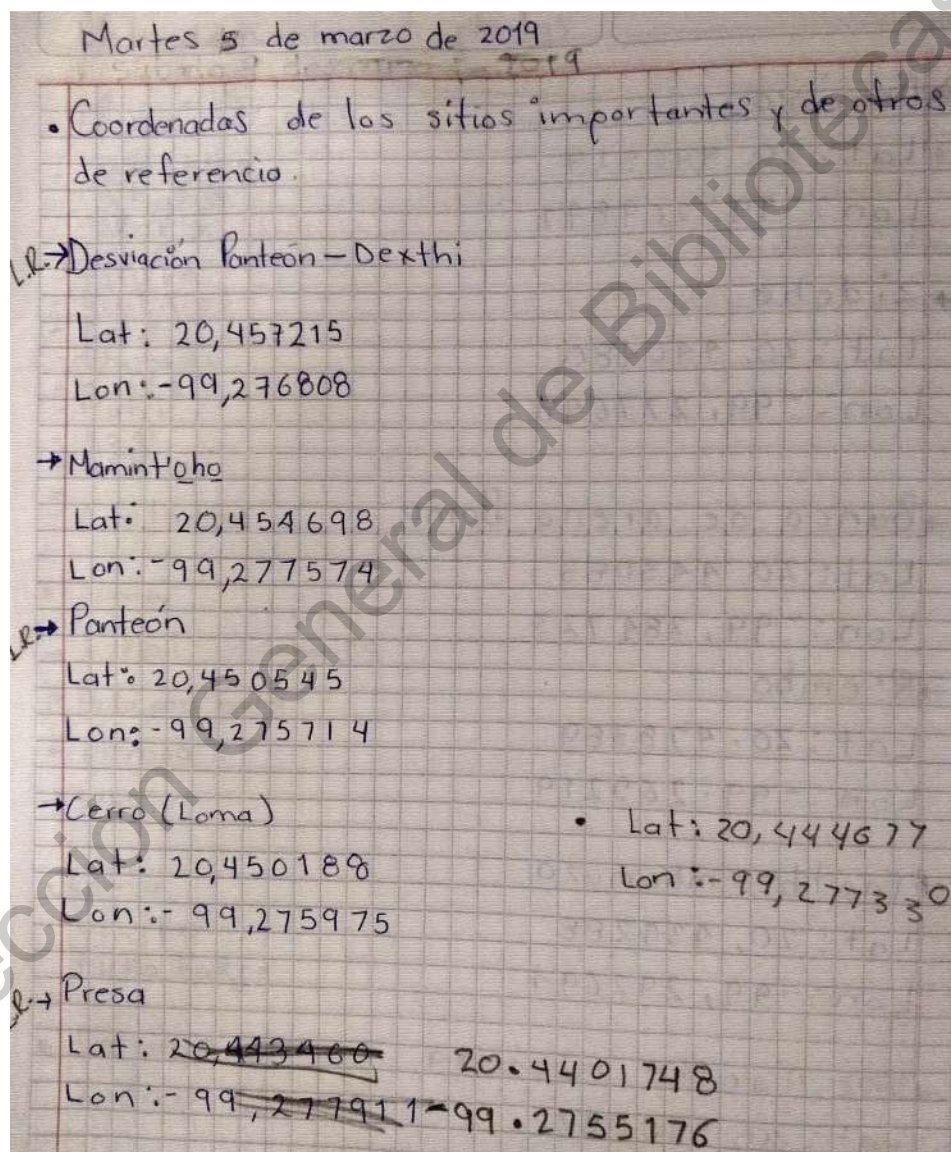 Martes 5 de marzo de 2019
• Coordenadas de los sitios importantes y de otros
de referencia.
L.R.→Desviación Panteón - Dexthi
Lat: 20,457215
Lon: -99,276808
→ Mamint'o̲ho̲
Lat: 20,454698
Lon: -99,277574
L.R.→ Panteón
Lat: 20,450545
Lon: -99,275714
→Cerro (Loma)
Lat: 20,450188
Lon: - 99,275975
• Lat: 20,444677
Lon: -99,277330
L.R.→ Presa
Lat: 20,443460 20.4401748
Lon: - 99,277911 -99.2755176
Dirección General de Bibliotecas